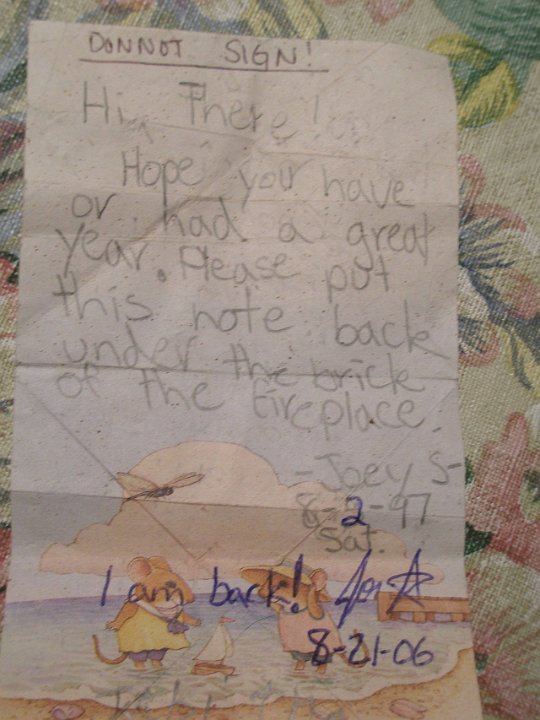 DONNOT SIGN!
Hi, There!
Hope you have
or had a great
year. Please put
this note back
under the brick
of the fireplace.
-Joey S-
8-2-97
Sat.
I am back!
8-21-06